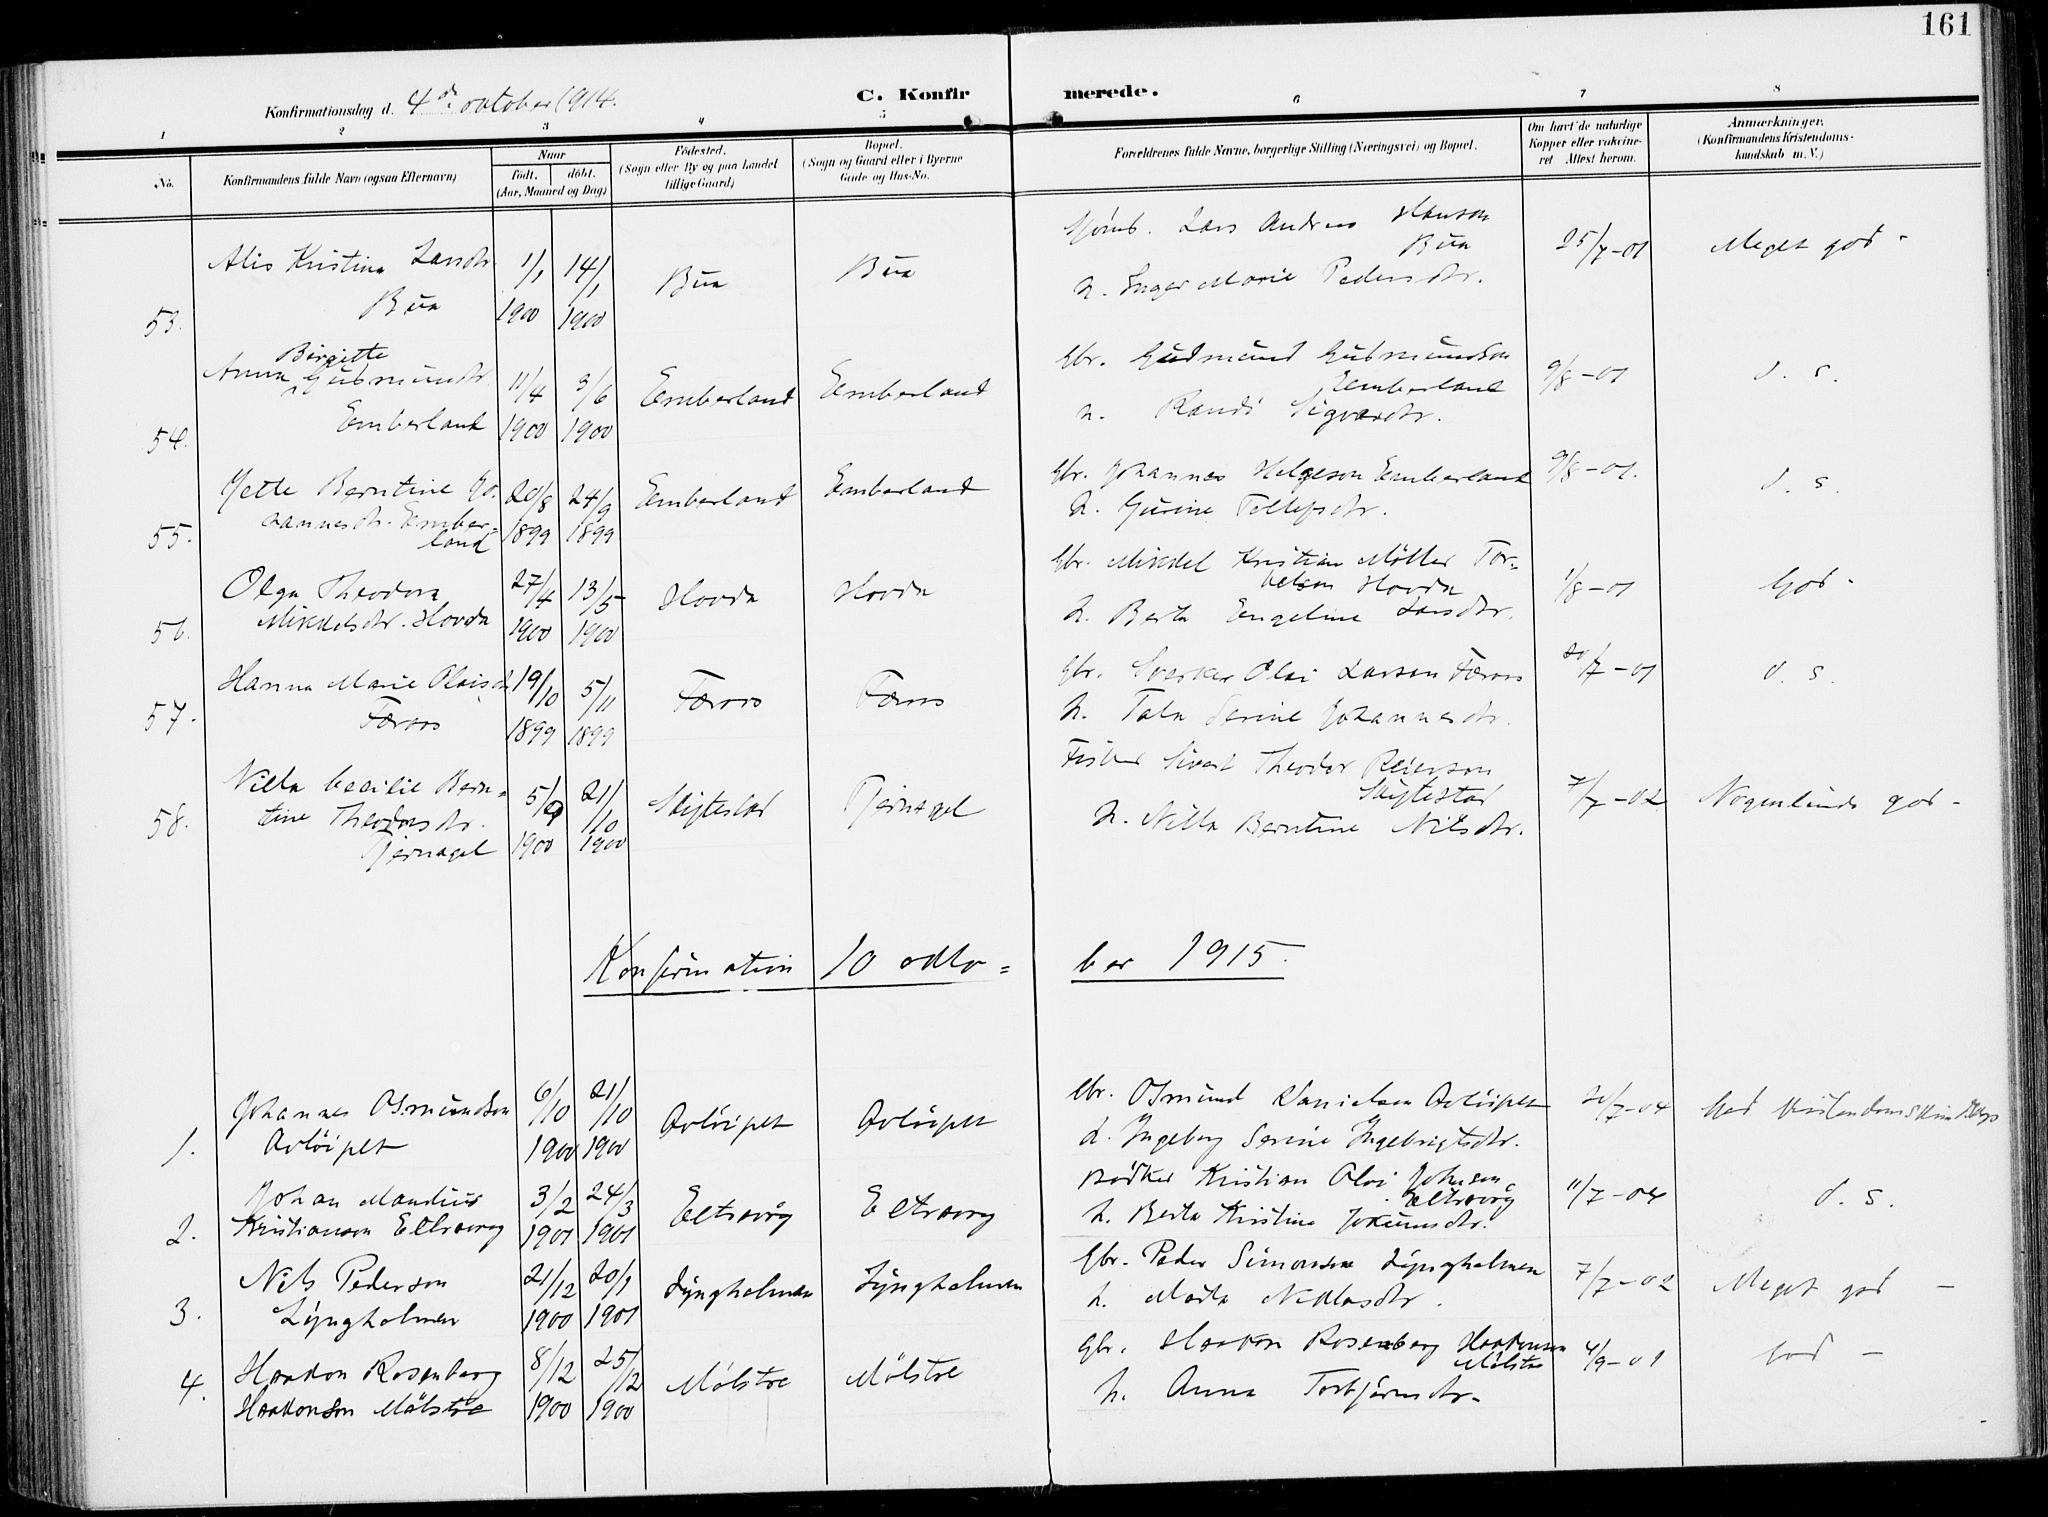 161
Konfirmationsdag d. 4de oktober 1914.
C. Konfirmerede.
1 2 3 4 5 6 7 8
No.
Konfirmandens fulde Navn (ogsaa Efternavn)
Naar
født. døbt.
(Aar, Maaned og Dag)
Fødested.
(Sogn eller By og paa Landet
tillige Gaard)
Bopæl.
(Sogn og Gaard eller i Byerne
Gade og Hus-No.
Forældrenes fulde Navne, borgerlige Stilling (Næringsvei) og Bopæl.
Om havt de naturlige
Kopper eller vakcine-
ret Attest herom.
Anmærkninger.
(Konfirmandens Kristendoms-
kundskab m. V.)
53. Alis Kristina Larsdtr. Bua 1/1 1900 14/1 1900 Bua Bua
Lars Andreas Hanson Bua
h. Inger Marie Pedersdtr. 25/7-01 Meget god -
54. Anna Birgitte Gudmundsdtr. Emberland 11/4 1900 3/6 1900 Emberland Emberland
Gbr. Gudmund Gudmundson Emberland
h. Randi Sigvardtr. 9/8-01 d. s.
55. Jette Berntine Jo-
hannesdtr. Ember-
land 20/8 1899 24/9 1899 Emberland Emberland
Gbr. Johannes Helgeson Emberland
h. Gurine Tollefsdtr. 9/8-01. d. s.
56. Olga Theodora
Mikkelsdtr. Hovda 27/4 1900 13/5 1900 Hovda Hovda
Gbr. Mikkel Kristian Møller Tor-
kelson Hovda
h. Berta Engeline Larsdtr. 1/8-01 God -
57. Hanna Marie Olaisdtr.
Færøs 19/10 1899 5/11 1899 Færøs Færøs
Gbr. Sverker Olai Larson Færøs
h. Tala Serine Johannesdtr. 20/7-01 d. s.
58. Nilla Cecilie Bern-
tine Theodorsdtr.
Tjernagel 5/9 1900 21/10 1900 Skjitestad Tjernagel
Fisker Sivert Theodor Reierson
Skjitestad
h. Nilla Berntine Nilsdtr. 7/7-02 Nogenlunde god -
Konfirmation 10 okto-
ber 1915.
1. Johannes Osmundson
Avløiplt 6/10 1900 21/10 1900 Avløiplt Avløiplt
Gbr. Osmund Danielson Avløiplt
h. Ingeborg Serine Ingebrigtsdtr. 20/7-04 God
2. Johan Mandius
Kristianson Eltravåg 3/2 1901 24/3 1901 Eltravåg Eltravåg
Bødker Kristian Olai Johnson
Eltravåg
h. Berta Kristine Jokumsdtr. 11/7-04 d. s.
3. Nils Pederson
Lyngholmen 21/12 1900 20/1 1901 Lyngholmen Lyngholmen
Gbr. Peder Simonson Lyngholmen
h. Marta Niklasdtr. 7/7-02 Meget god -
4. Haakon Rosenberg
Haakonson Mølstre 8/12 1900 25/12 1900 Mølstre Mølstre
Gbr. Haakon Rosenberg Haakonson
Mølstre
h. Anna Torbjørnsdtr. 4/9-01 God -